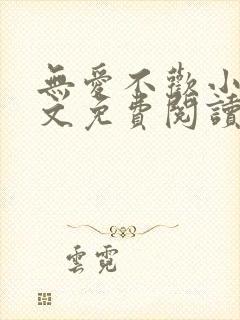 無愛不歡小
文免費閱讀
雲霓